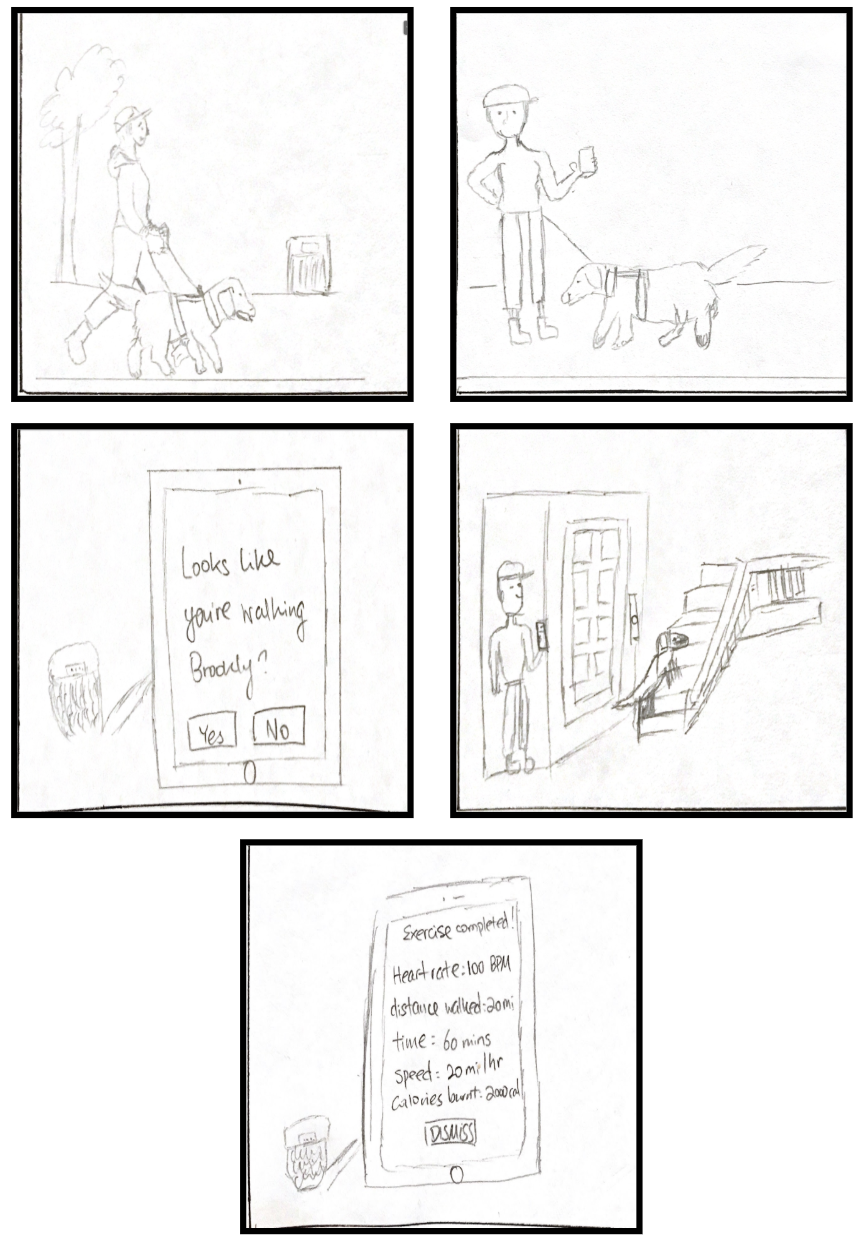 Looks like
you're walking
Brookly?
Yes No
Exercise completed!
Heart rate: 100 BPM
distance walked: 20mi
time: 60 mins
speed: 20 mi/hr
Calories burnt: 2000 cal
DISMISS